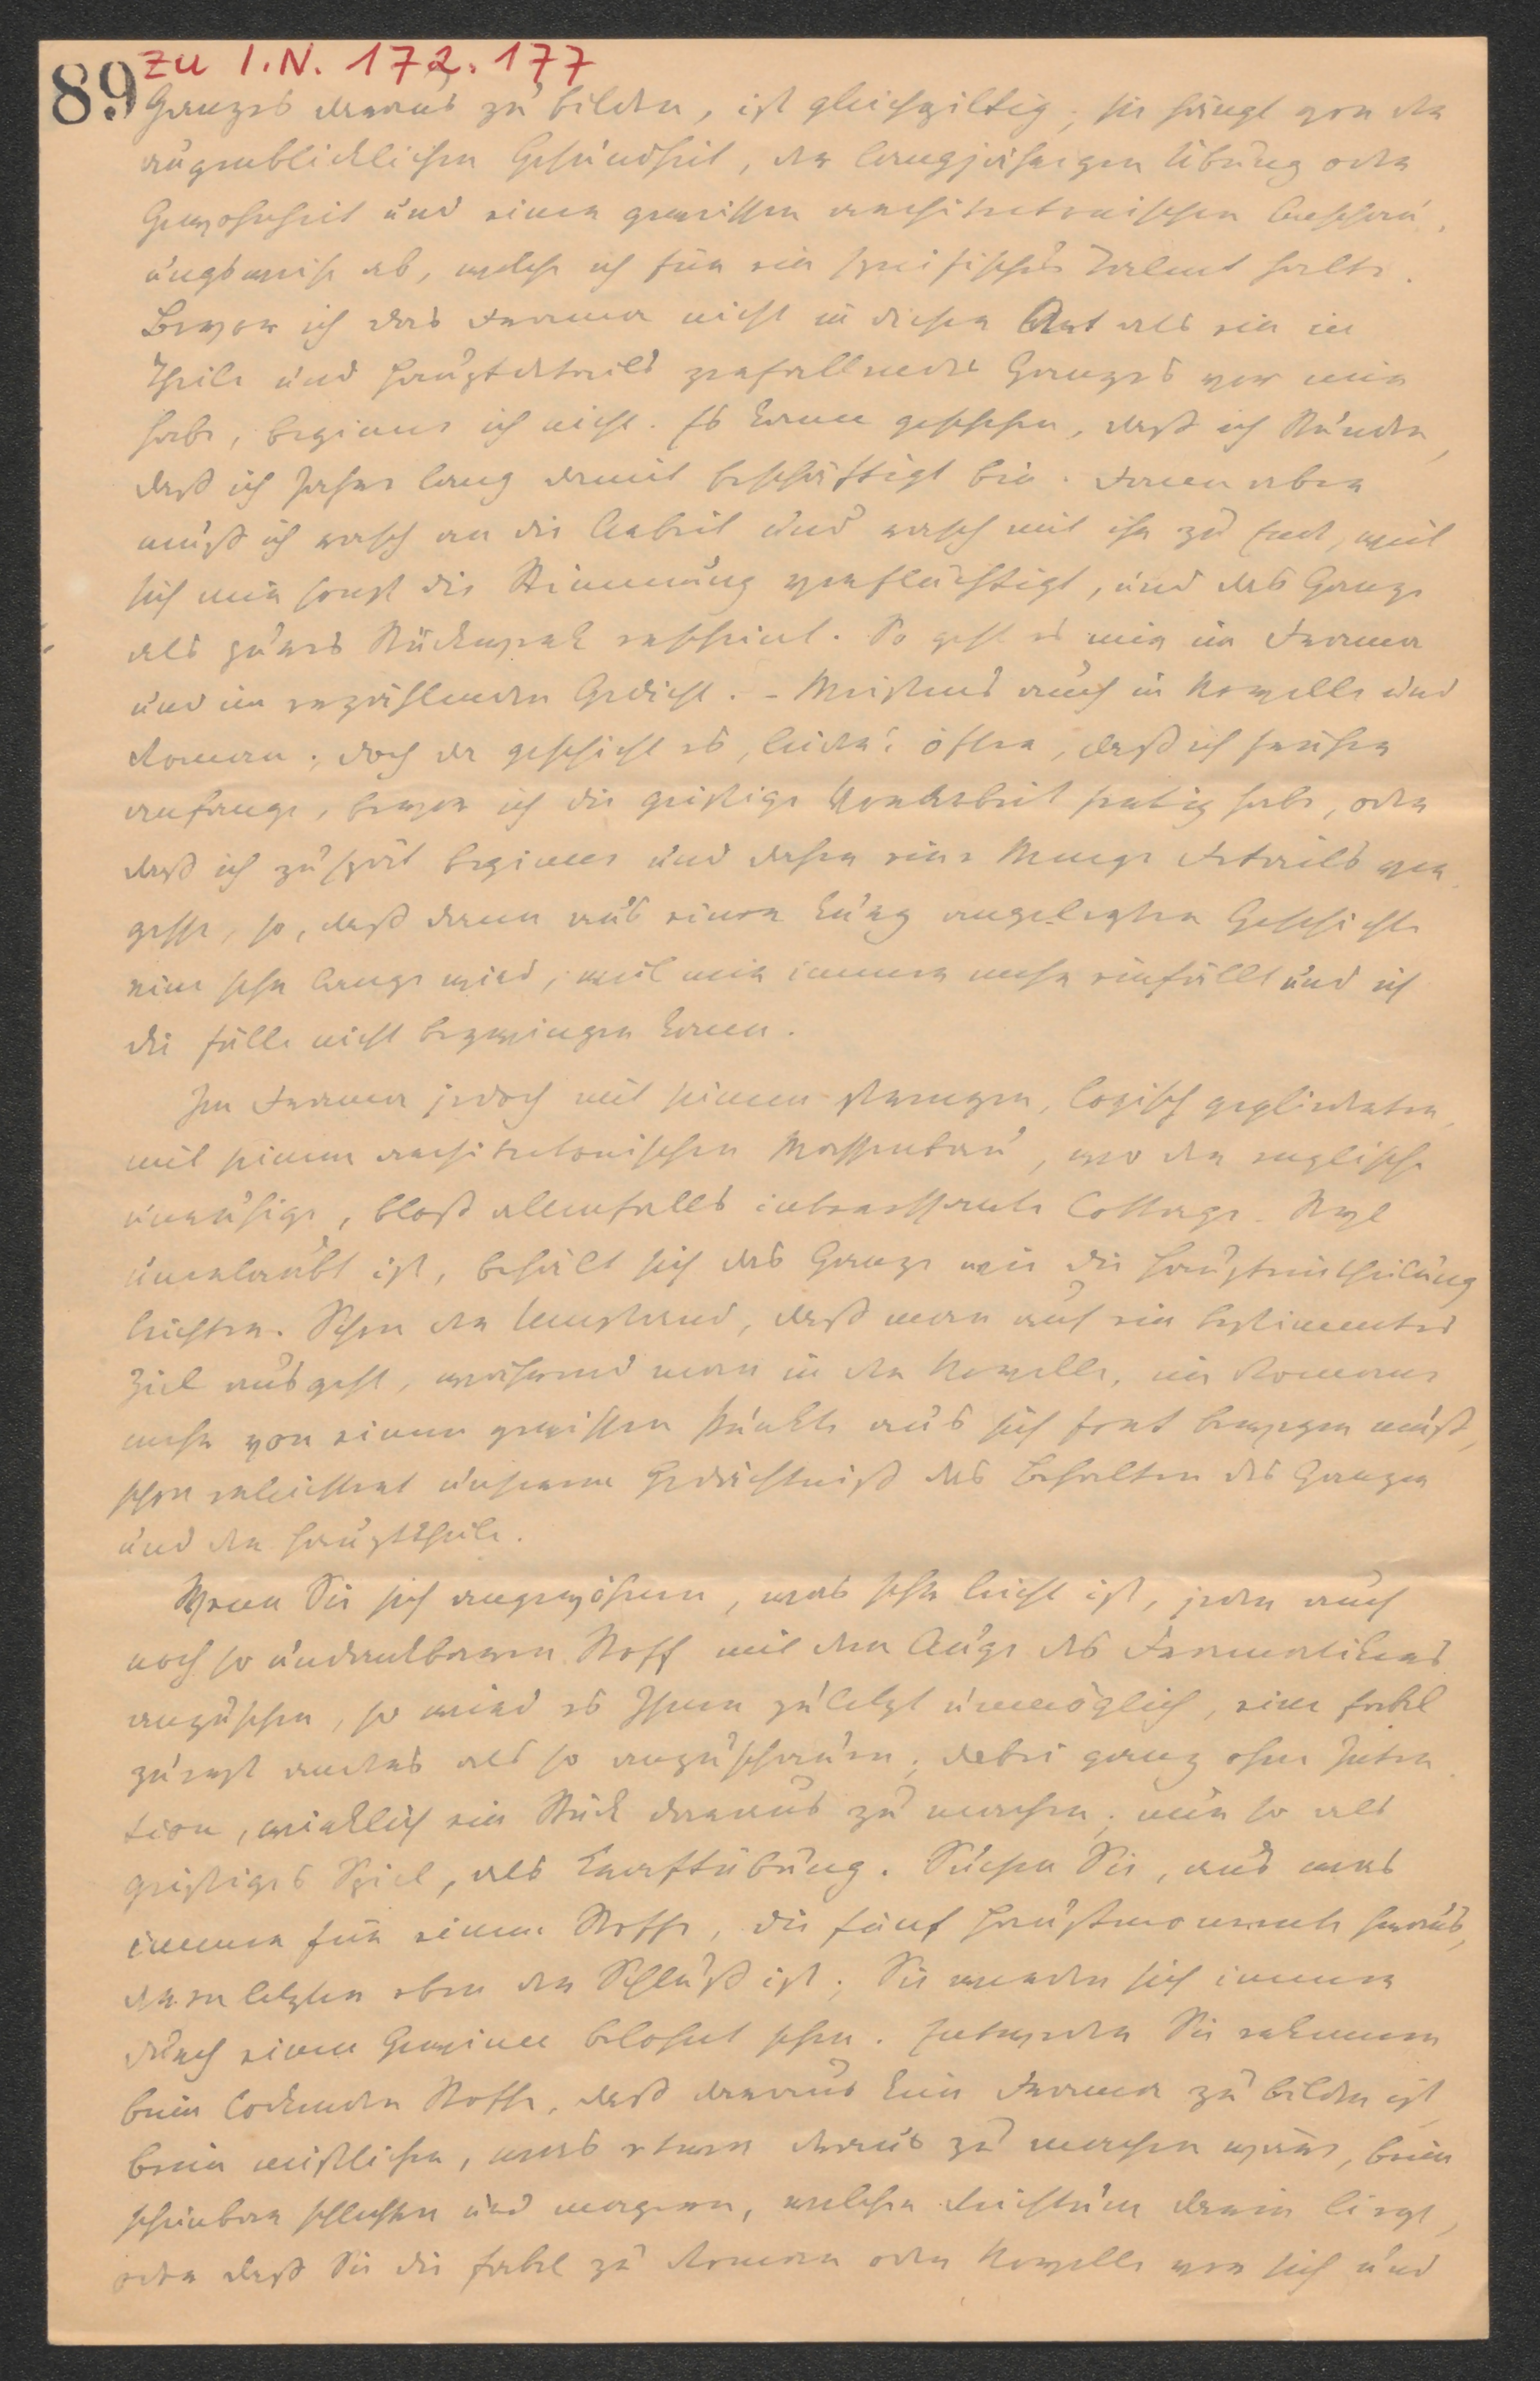 89 zu I.N. 172.177
Ganzes daraus zu bilden, ist gleichgiltig; sie hängt von der
augenblicklichen Gesundheit, der langjährigen Übung oder
Gewohnheit und einer gewissen architectonischen Anschau-
ungsweise ab, welche ich für ein spezifisches Talent halte.
Bevor ich das Drama nicht in dieser Art als ein in
Theile und Hauptdetails zerfallendes Ganzes vor mir
habe, beginne ich nicht. Es kann geschehen, daß ich Stunden,
daß ich Jahre lang damit beschäftigt bin. Dann aber
muß ich rasch an die Arbeit und rasch mit ihr zu End, weil
sich mir sonst die Stimmung verflüchtigt, und das Ganze
als pures Stückwerk erscheint. So geht es mir im Drama
und im erzählenden Gedicht. – Meistens auch in Novelle und
Roman; doch da geschieht es, leider, öfter, daß ich früher
anfange, bevor ich die geistige Vorarbeit fertig habe, oder
daß ich zu spät beginne und daher eine Menge Details ver-
gesse, so, daß dann aus einer kurz angelegten Geschichte
eine sehr lange wird, weil mir immer mehr einfällt und ich
die Fülle nicht bezwingen kann.
Im Drama jedoch mit seinem strengen, logisch gegliederten,
mit seinem architectonischen Massenbau, wo der englische
unruhige, bloß allenfalls interessante Cottage-Styl
unerlaubt ist, behält sich das Ganze wie die Haupteintheilung
leichter. Schon der Umstand, daß man auf ein bestimmtes
Ziel ausgeht, während man in der Novelle, im Romane
mehr von einem gewissen Punkte aus sich fort bewegen muß,
schon erleichtert unserem Gedächtniß das Behalten des Ganzen
und der Haupttheile.
Wenn Sie sich angewöhnen, was sehr leicht ist, jeden auch
noch so undankbaren Stoff mit dem Auge des Dramatikers
anzusehen, so wird es Ihnen zuletzt unmöglich, eine Fabel
zuerst anders als so anzuschauen; dabei ganz ohne Inten-
tion, wirklich ein Stück daraus zu machen; nur so als
geistiges Spiel, als Kraftübung. Suchen Sie, aus was
immer für einem Stoffe, die fünf Hauptmomente heraus,
deren letzter eben der Schluß ist; Sie werden sich immer
durch einen Gewinn belohnt sehen. Entweder Sie erkennen
beim lockenden Stoffe, daß daraus kein Drama zu bilden ist,
beim mißlichen, was etwa daraus zu machen wäre, beim
scheinbar schlechten und mageren, welcher Reichtum darin liegt,
oder daß Sie die Fabel zu Roman oder Novelle vor sich und